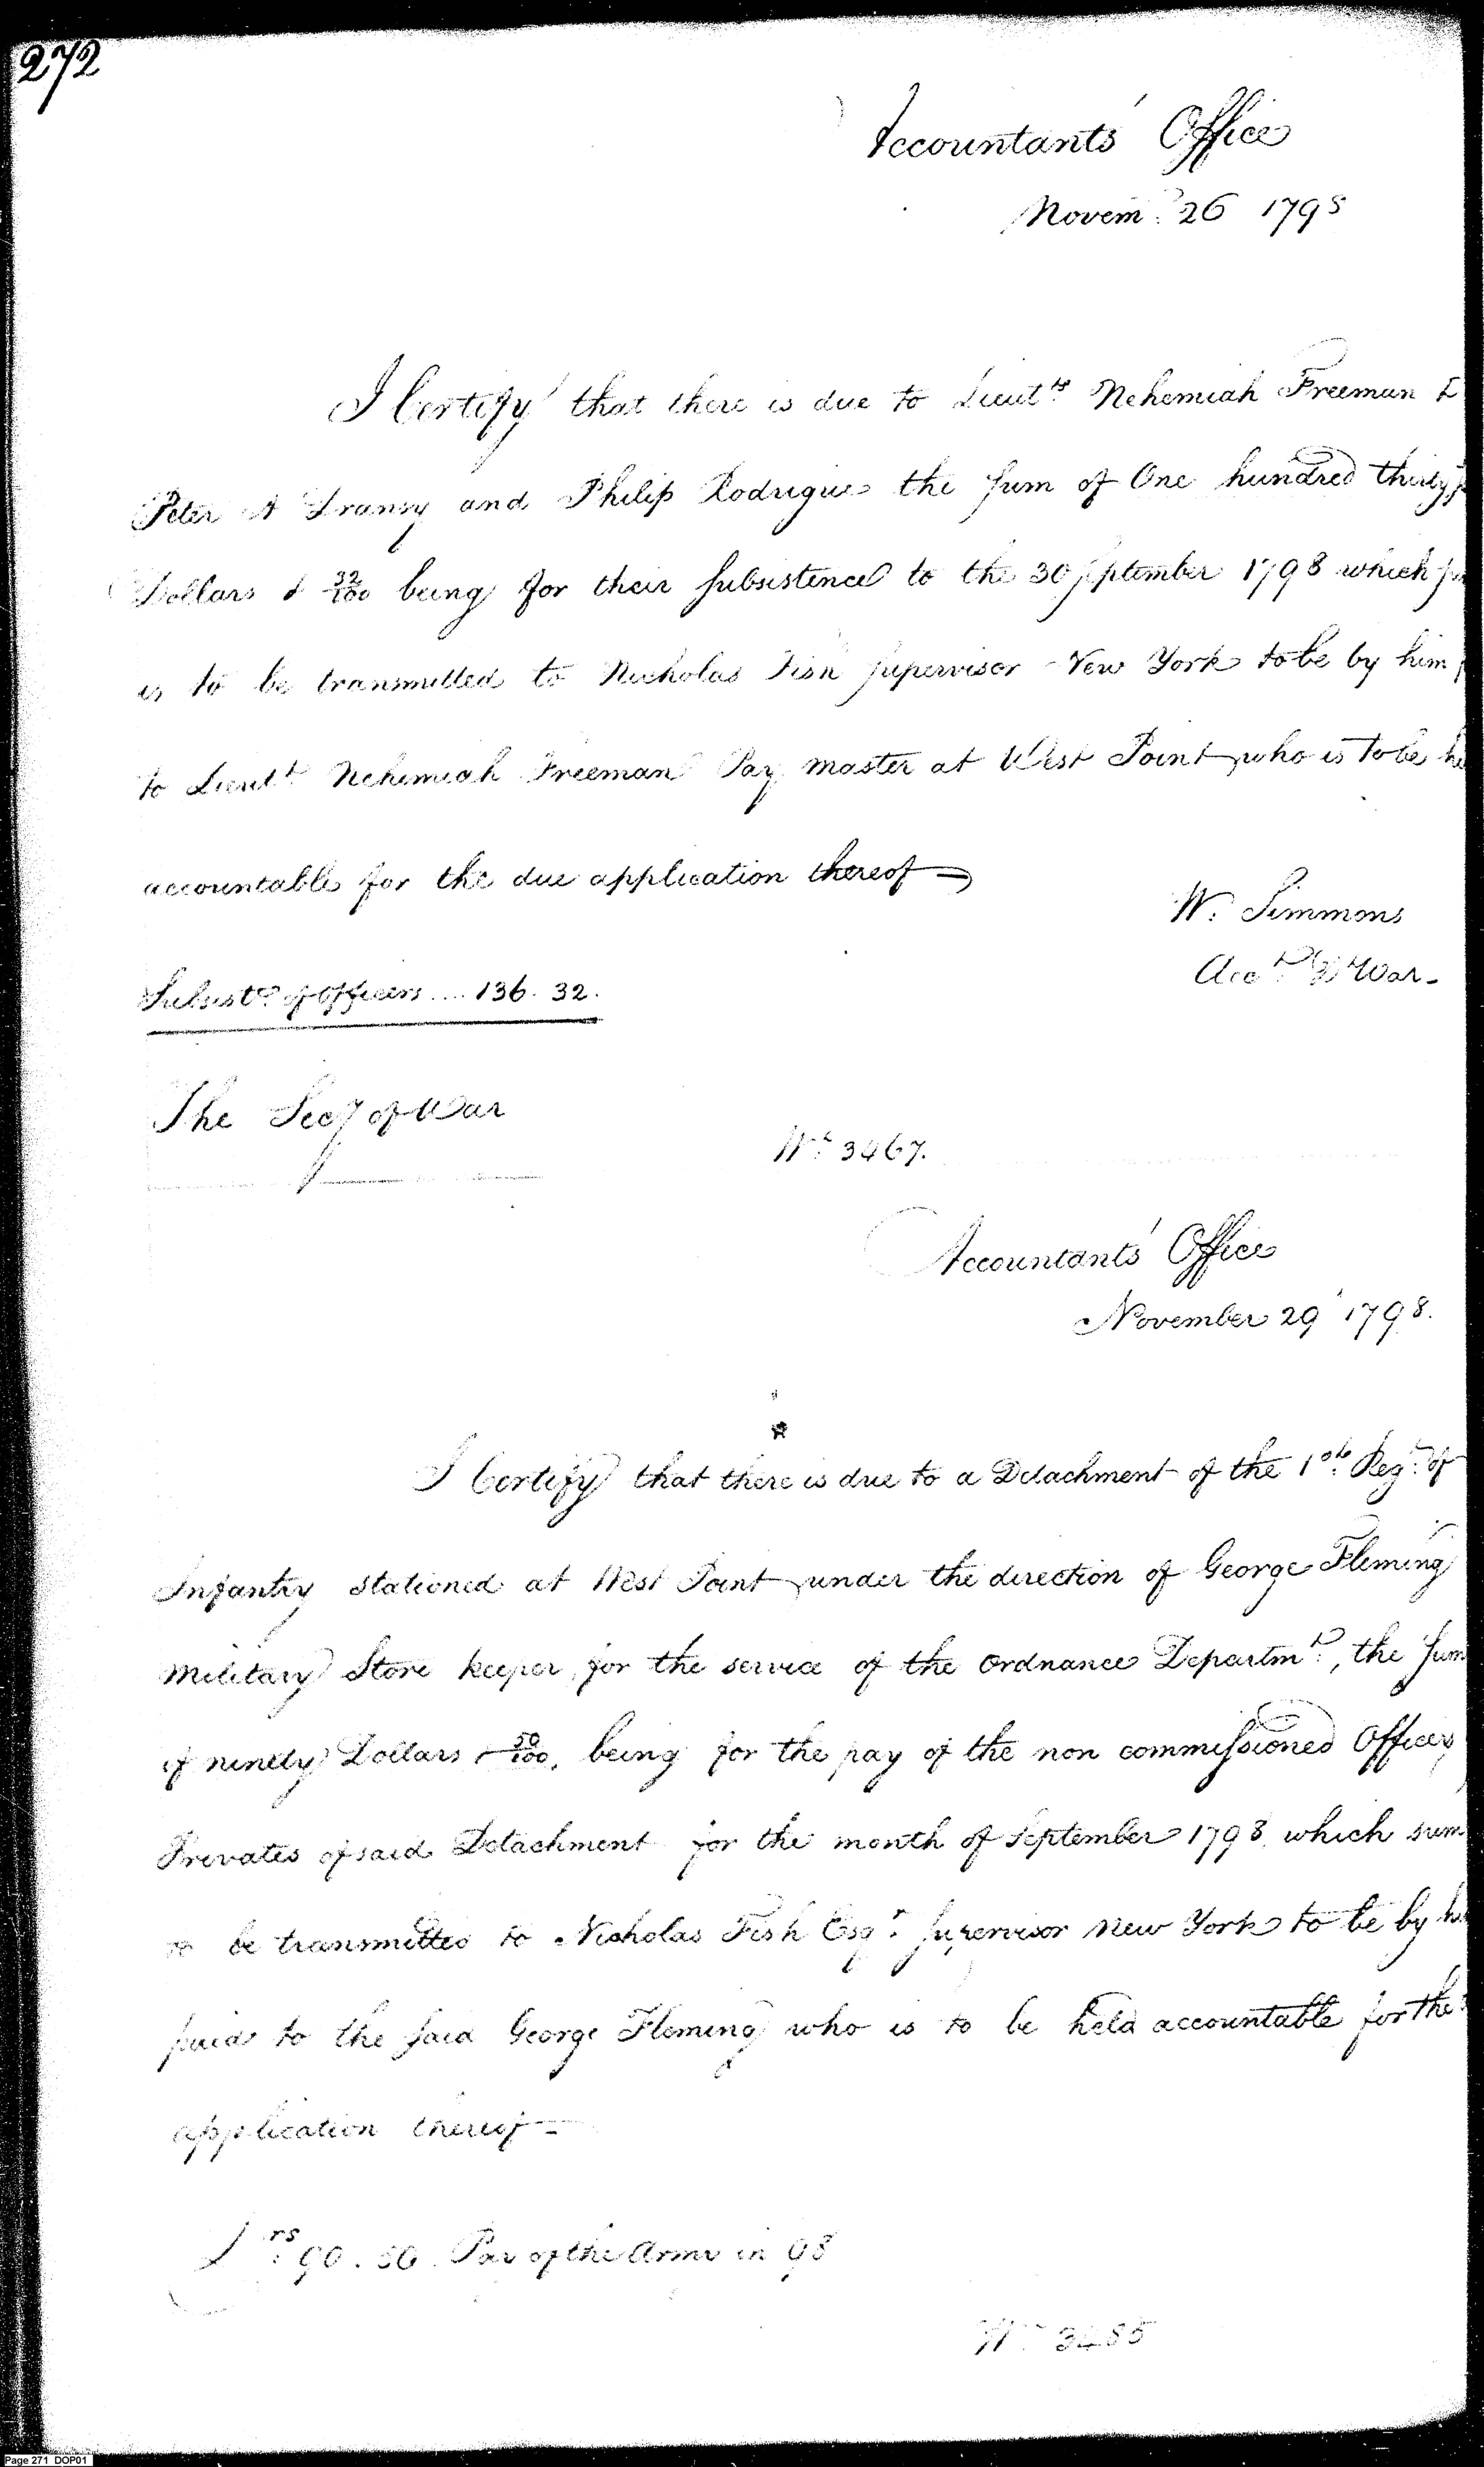 272
Accountants' Office
Novemr. 26 1798
I Certify that there is due to Lieutts Nehemiah Freeman
Peter A Dransy and Philip Rodrigue the sum of One hundred thirty
Dollars & 32/100 being for their subsistence to the 30 September 1798 which
is to be transmitted to Nicholas Fish supervisor New York to be by him
to Lieutt Nehemiah Freeman Pay master at West Point who is to be
accountable for the due application thereof
W. Simmons
Acct. D War.
Subsistce of officers .... 136. 32.
The Secy of War
Wt. 3467.
Accountants' Office
November 29 1798.
I Certify that there is due to a Detachment of the 1st. Regt. of
Infantry stationed at West Point under the direction of George Fleming
Military Store keeper, for the service of the Ordnance Departmt., the sum
of ninety Dollars 50/100, being for the pay of the non commissioned Officers
Privates of said Detachment for the month of September 1798, which sum
to be transmitted to Nicholas Fish Esqr. supervisor New York to be by
paid to the said George Fleming who is to be held accountable for the
application thereof
Drs. 90. 50. Pay of the Army in 98
Wt 3485
Page 271 DOP01